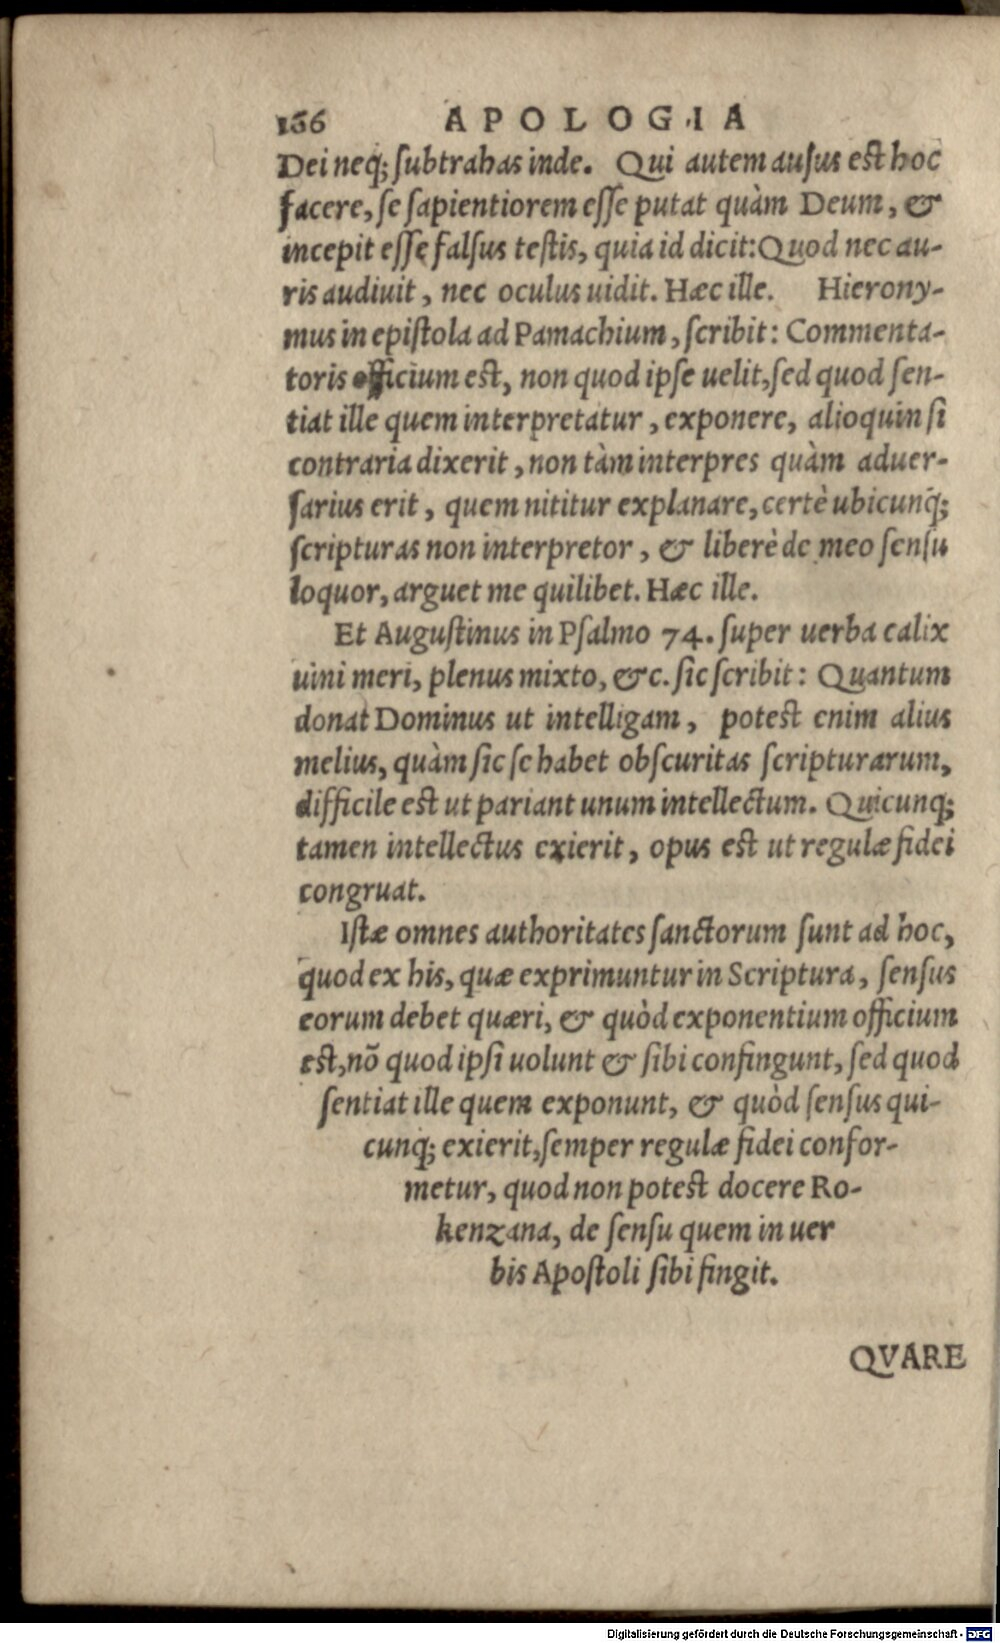 166 APOLOGIA
Dei neq; subtrahas inde. Qui autem ausus est hoc
facere, se sapientiorem esse putat quàm Deum, &
incepit esse falsus testis, quia id dicit: Quod nec au-
ris audiuit, nec oculus uidit. Hæc ille. Hierony-
mus in epistola ad Pamachium, scribit: Commenta-
toris officium est, non quod ipse uelit, sed quod sen-
tiat ille quem interpretatur, exponere, alioquin si
contraria dixerit, non tàm interpres quàm aduer-
sarius erit, quem nititur explanare, certè ubicunq;
scripturas non interpretor, & liberè de meo sensu
loquor, arguet me quilibet. Hæc ille.
Et Augustinus in Psalmo 74. super uerba calix
uini meri, plenus mixto, &c. sic scribit: Quantum
donat Dominus ut intelligam, potest enim alius
melius, quàm sic se habet obscuritas scripturarum,
difficile est ut pariant unum intellectum. Quicunq;
tamen intellectus exierit, opus est ut regulæ fidei
congruat.
Istæ omnes authoritates sanctorum sunt ad hoc,
quod ex his, quæ exprimuntur in Scriptura, sensus
eorum debet quæri, & quòd exponentium officium
est, nõ quod ipsi uolunt & sibi confingunt, sed quod
sentiat ille quem exponunt, & quòd sensus qui-
cunq; exierit, semper regulæ fidei confor-
metur, quod non potest docere Ro-
kenzana, de sensu quem in uer
bis Apostoli sibi fingit.
QVARE
Digitalisierung gefördert durch die Deutsche Forschungsgemeinschaft - DFG